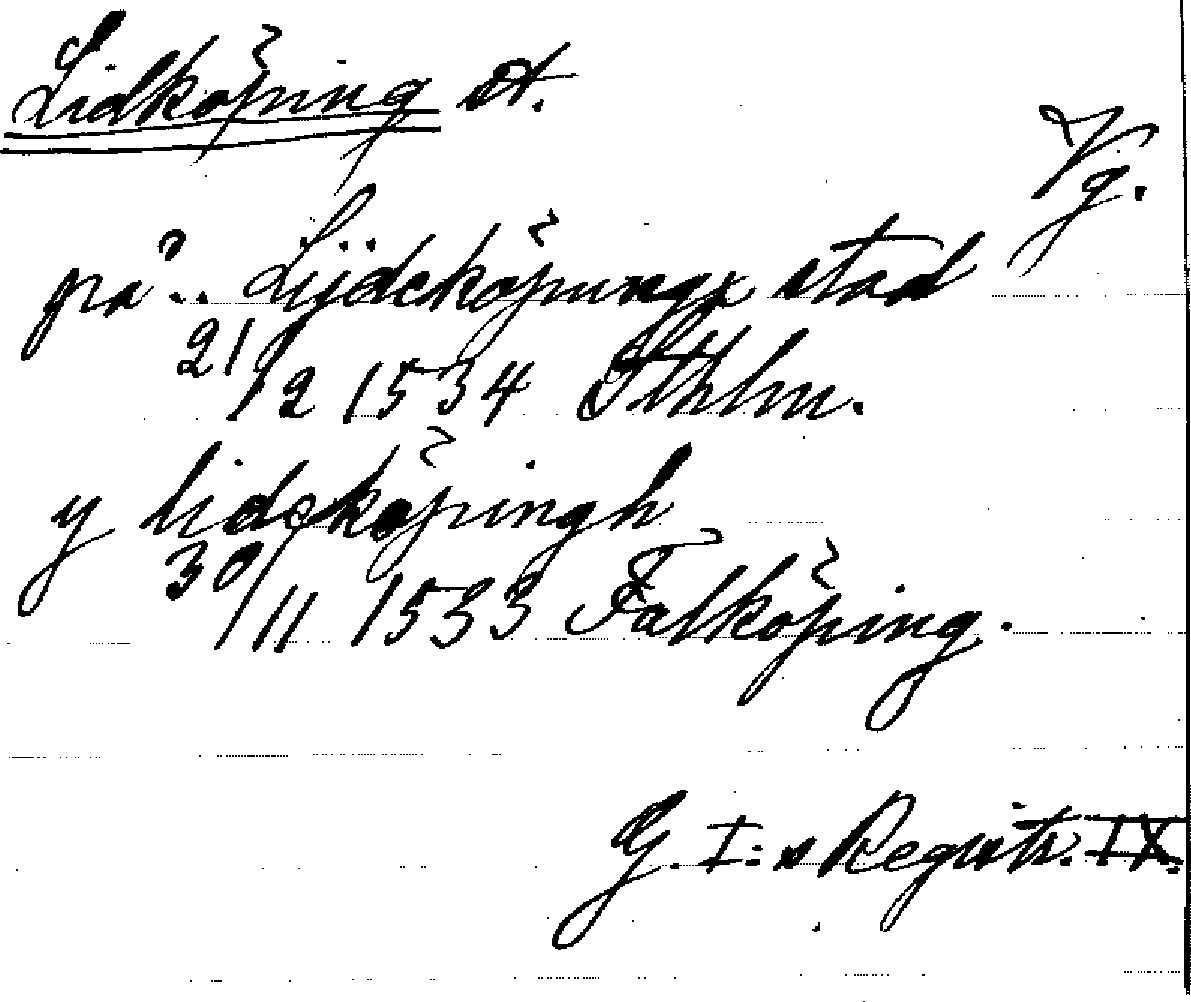 Lidköping st.
Vg.
på .. Lijdeköpungx stad
21/2 1534 Sthlm.
y lideköpingh
30/11 1533 Falköping.
G. I:s Registr. IX.